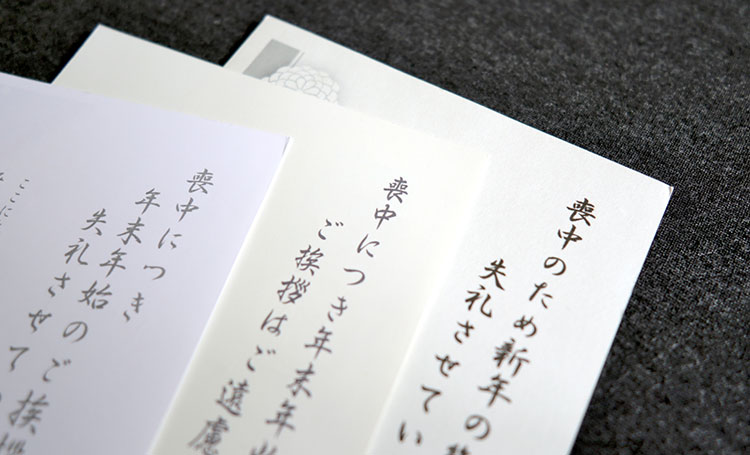 喪中のため新年の
失礼させてい
喪中につき年末年
ご挨拶はご遠慮
喪中につき
年末年始のご挨
失礼させて
ここに